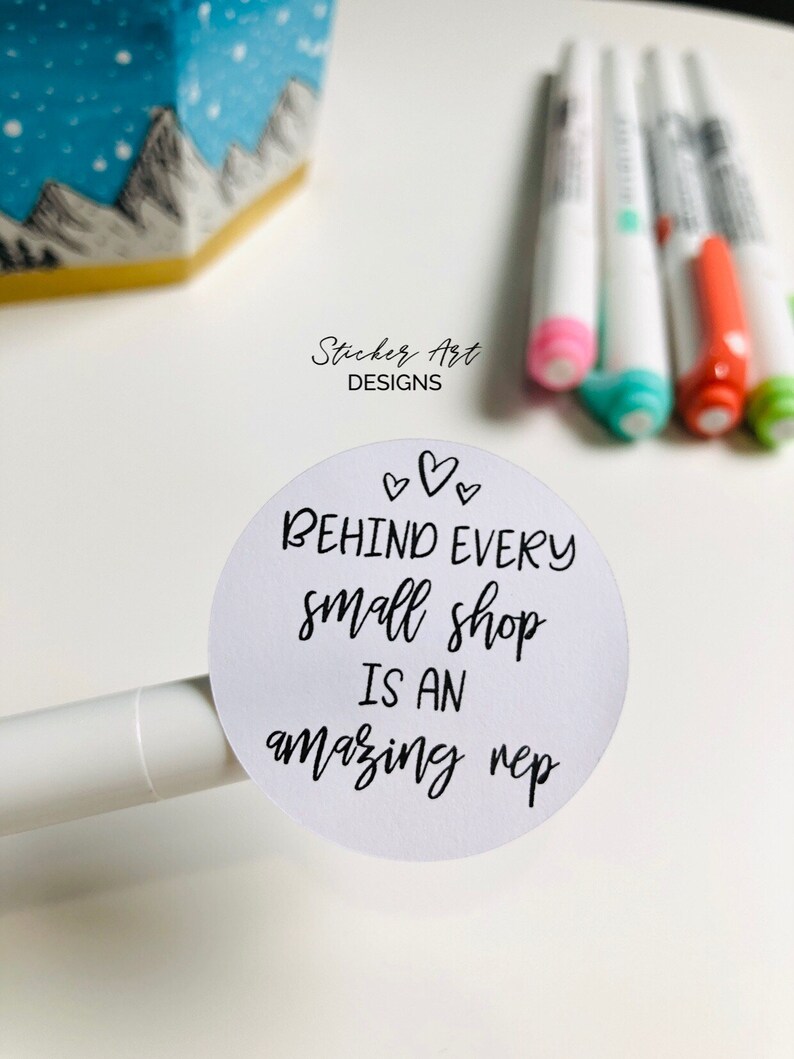 Sticker Art
DESIGNS
BEHIND EVERY
small shop
IS AN
amazing rep